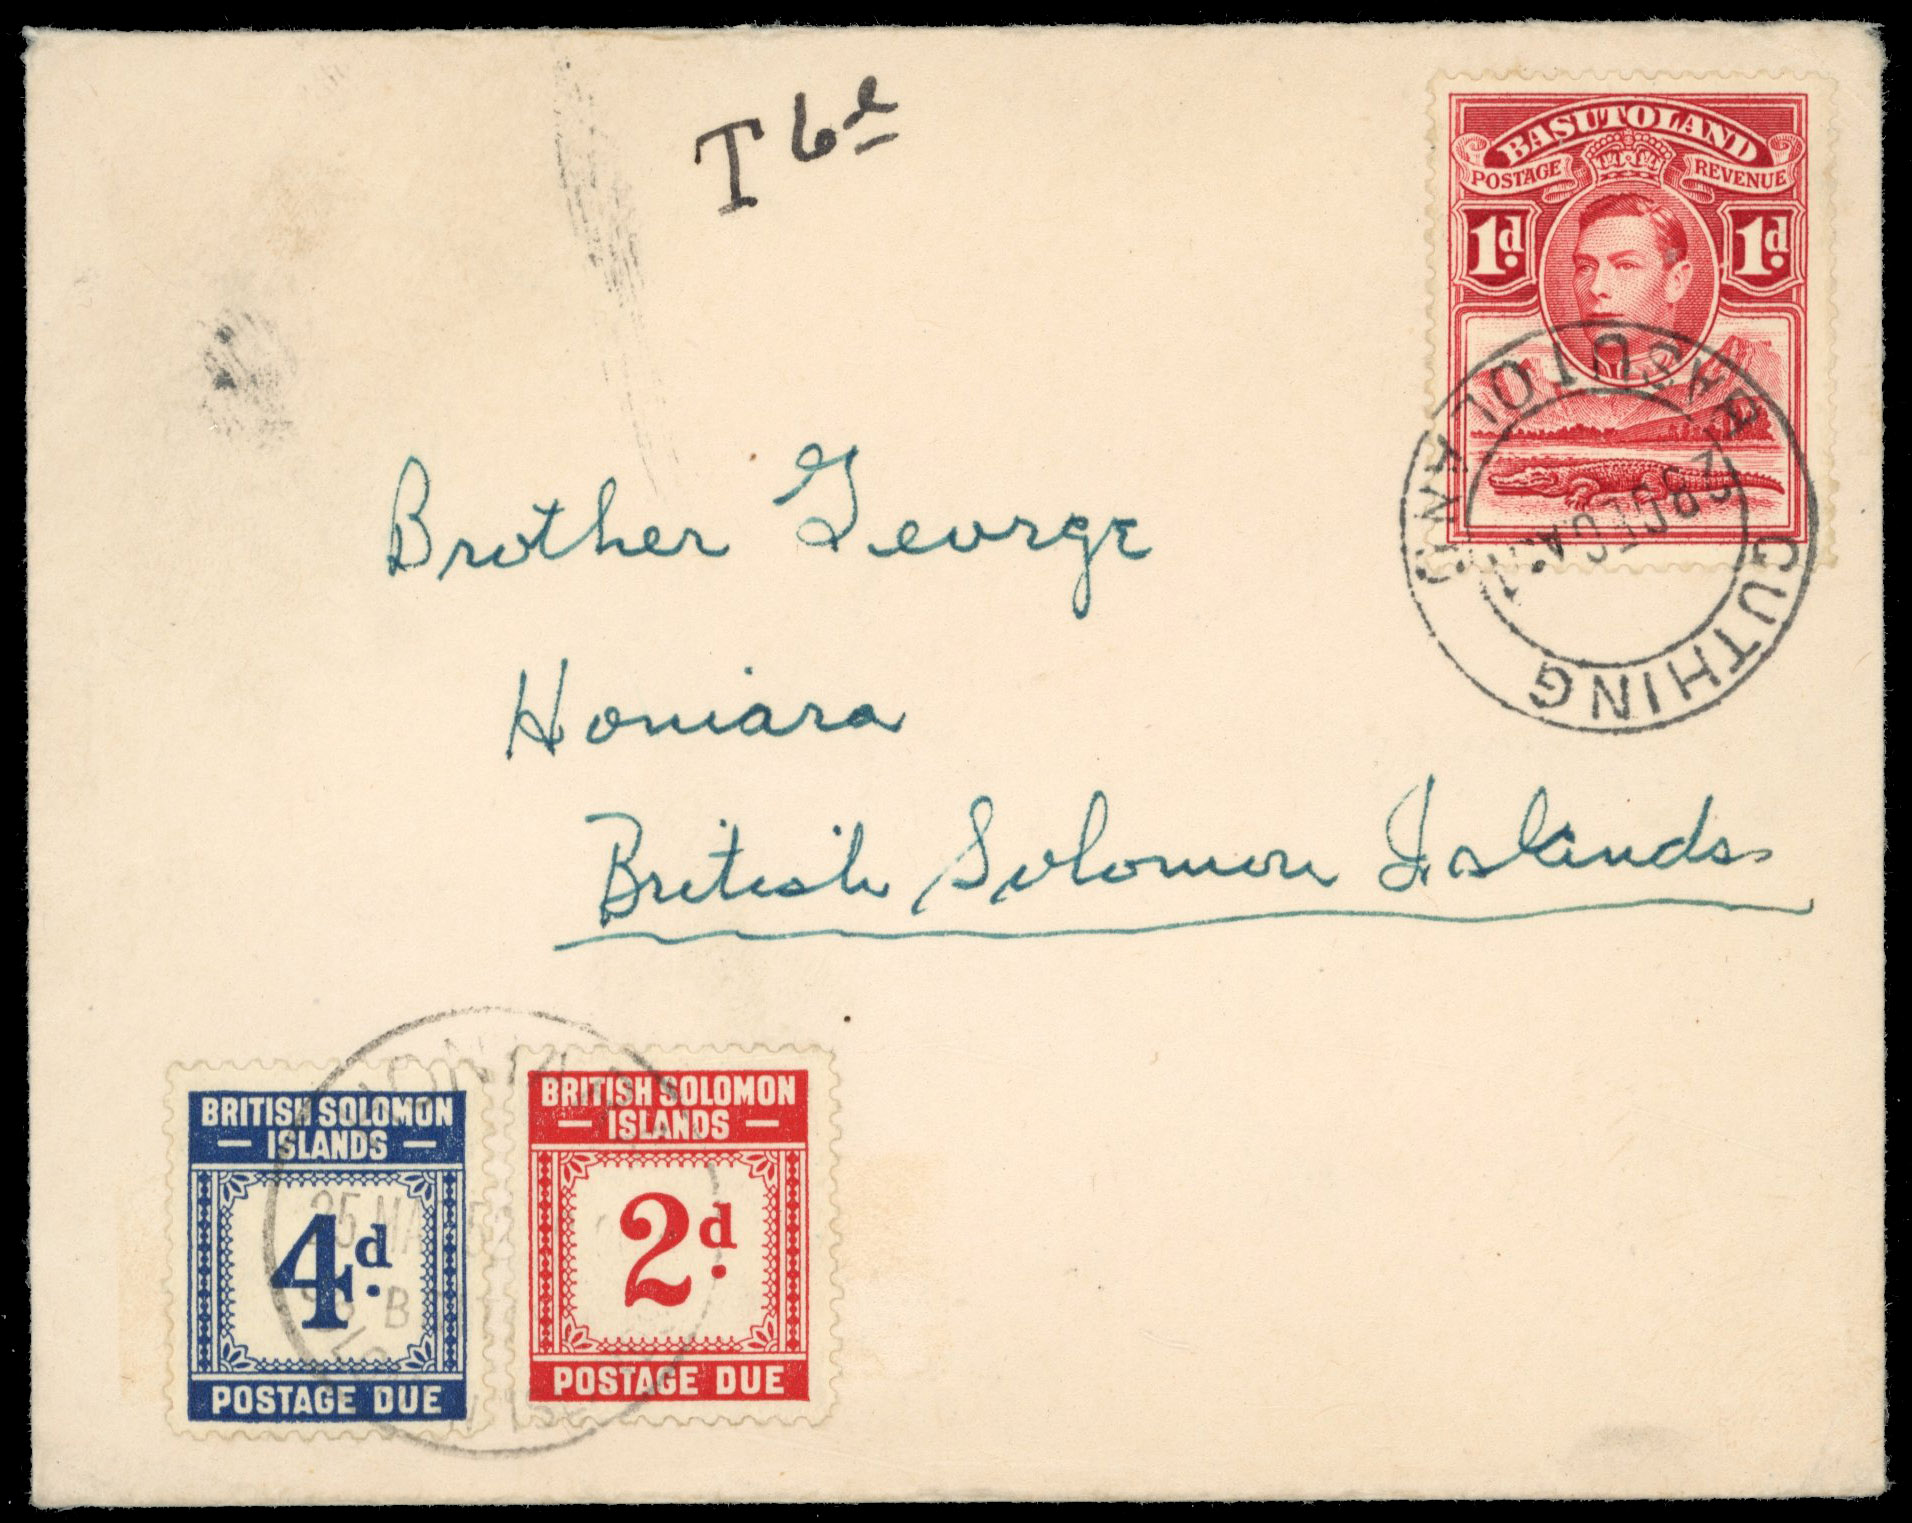 T 6d
BASUTOLAND
POSTAGE REVENUE
1d 1d
BASUTOLAND
QUTHING
Brother George
Honiara
British Solomon Islands
BRITISH SOLOMON
— ISLANDS —
4d.
POSTAGE DUE
BRITISH SOLOMON
— ISLANDS —
2d.
POSTAGE DUE